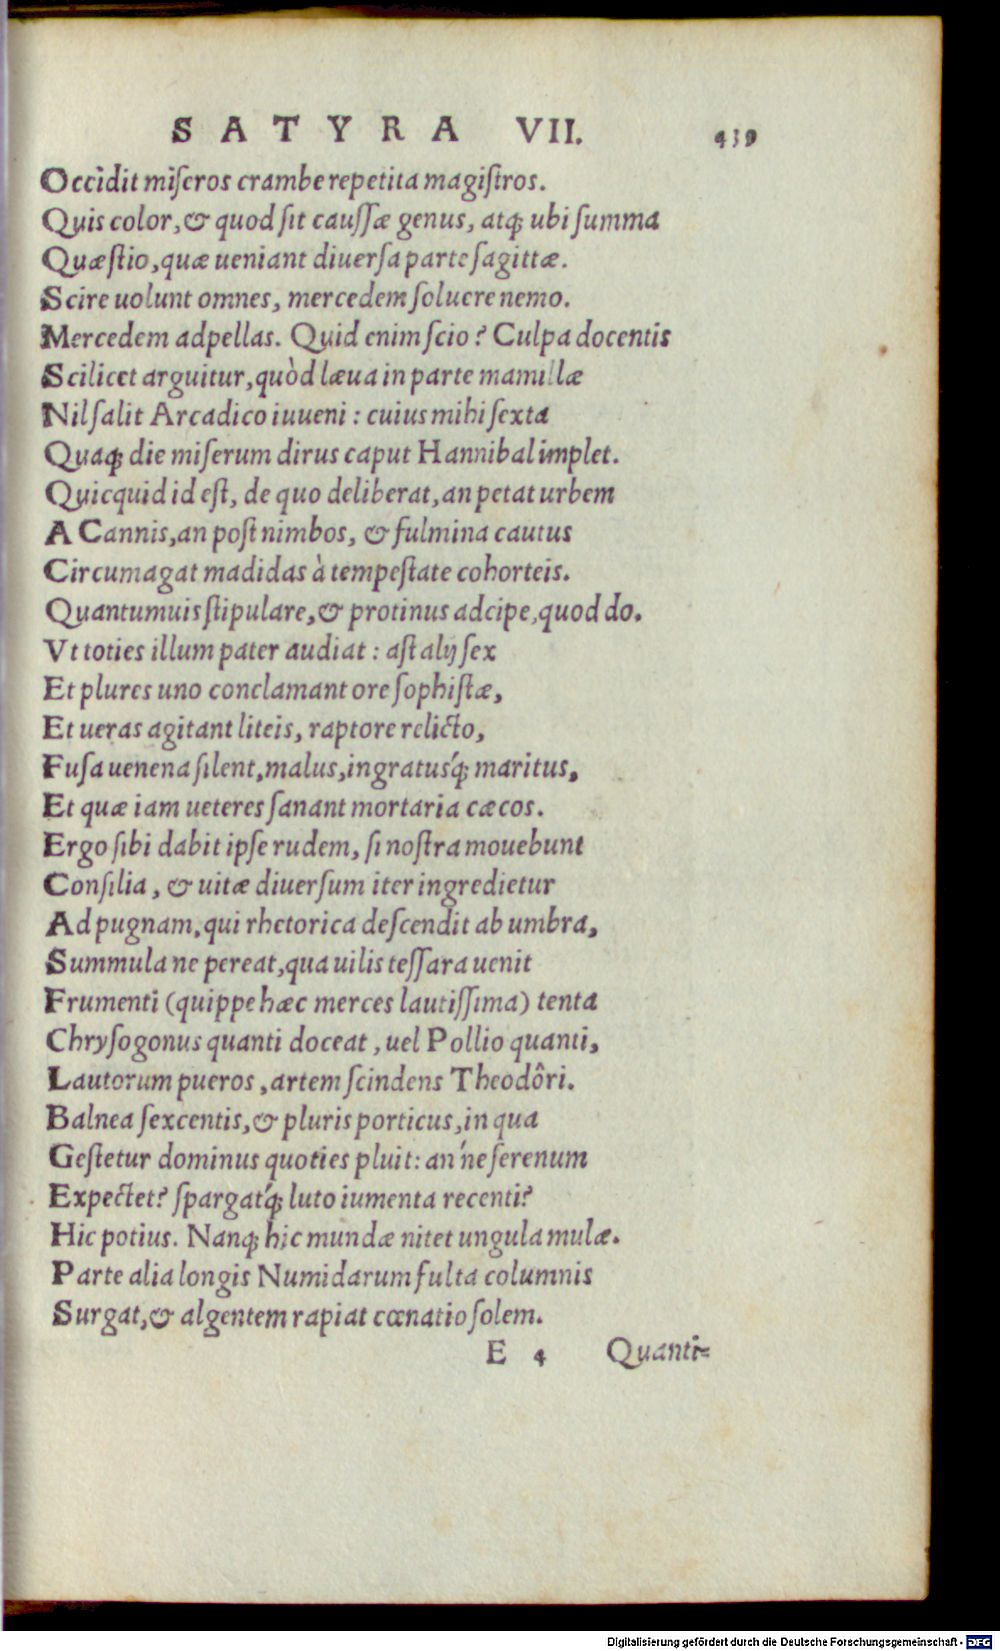 SATYRA VII. 439
Occìdit mìseros crambe repetita magiſtros.
Quis color, & quod ſit cauſſæ genus, atq́; ubi ſumma
Quæſtio, quæ ueniant diuerſa parte ſagittæ.
Scire uolunt omnes, mercedem ſoluere nemo.
Mercedem adpellas. Quid enim ſcio? Culpa docentis
Scilicet arguitur, quòd læua in parte mamillæ
Nil ſalit Arcadico iuueni: cuius mihi ſexta
Quaq; die miſerum dirus caput Hannibal implet.
Quicquid id eſt, de quo deliberat, an petat urbem
A Cannis, an poſt nimbos, & fulmina cautus
Circumagat madidas à tempeſtate cohorteis.
Quantumuis ſtipulare, & protinus adcipe, quod do.
Vt toties illum pater audiat: aſt alij ſex
Et plures uno conclamant ore ſophiſtæ,
Et ueras agitant liteis, raptore relicto,
Fuſa uenena ſilent, malus, ingratusq́; maritus,
Et quæ iam ueteres ſanant mortaria cæcos.
Ergo ſibi dabit ipſe rudem, ſi noſtra mouebunt
Conſilia, & uitæ diuerſum iter ingredietur
Ad pugnam, qui rhetorica deſcendit ab umbra,
Summula ne pereat, qua uilis teſſara uenit
Frumenti (quippe hæc merces lautiſſima) tenta
Chryſogonus quanti doceat, uel Pollio quanti,
Lautorum pueros, artem ſcindens Theodôri.
Balnea ſexcentis, & pluris porticus, in qua
Geſtetur dominus quoties pluit: an'ne ſerenum
Expectet? ſpargatq́; luto iumenta recenti?
Hic potius. Nanq; hic mundæ nitet ungula mulæ.
Parte alia longis Numidarum fulta columnis
Surgat, & algentem rapiat cœnatio ſolem.
E 4 Quanti=
Digitalisierung gefördert durch die Deutsche Forschungsgemeinschaft - DFG